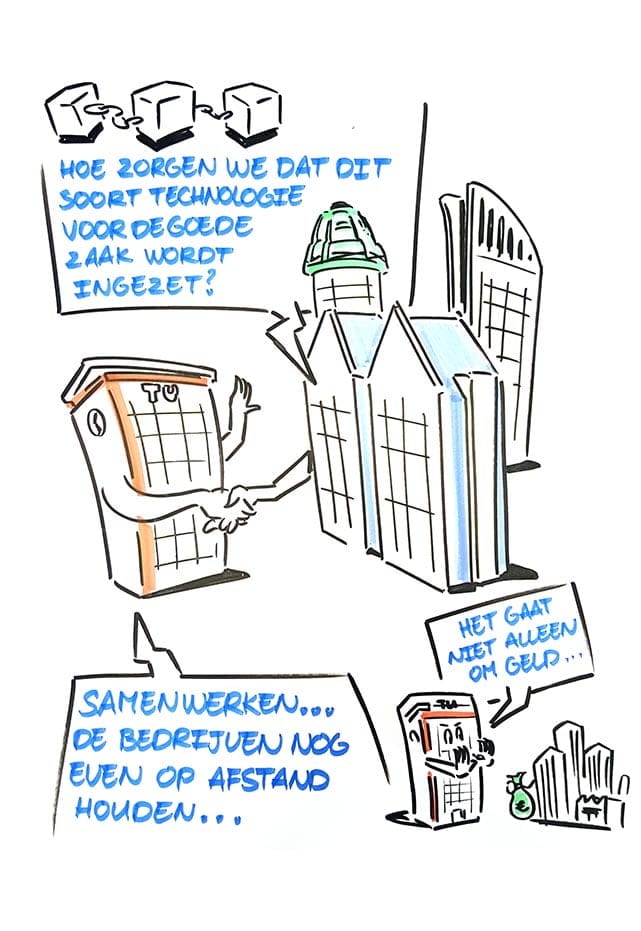 HOE ZORGEN WE DAT DIT
SOORT TECHNOLOGIE
VOOR DE GOEDE
ZAAK WORDT
INGEZET?
TU
SAMENWERKEN...
DE BEDRIJVEN NOG
EVEN OP AFSTAND
HOUDEN...
HET GAAT
NIET ALLEEN
OM GELD...
€